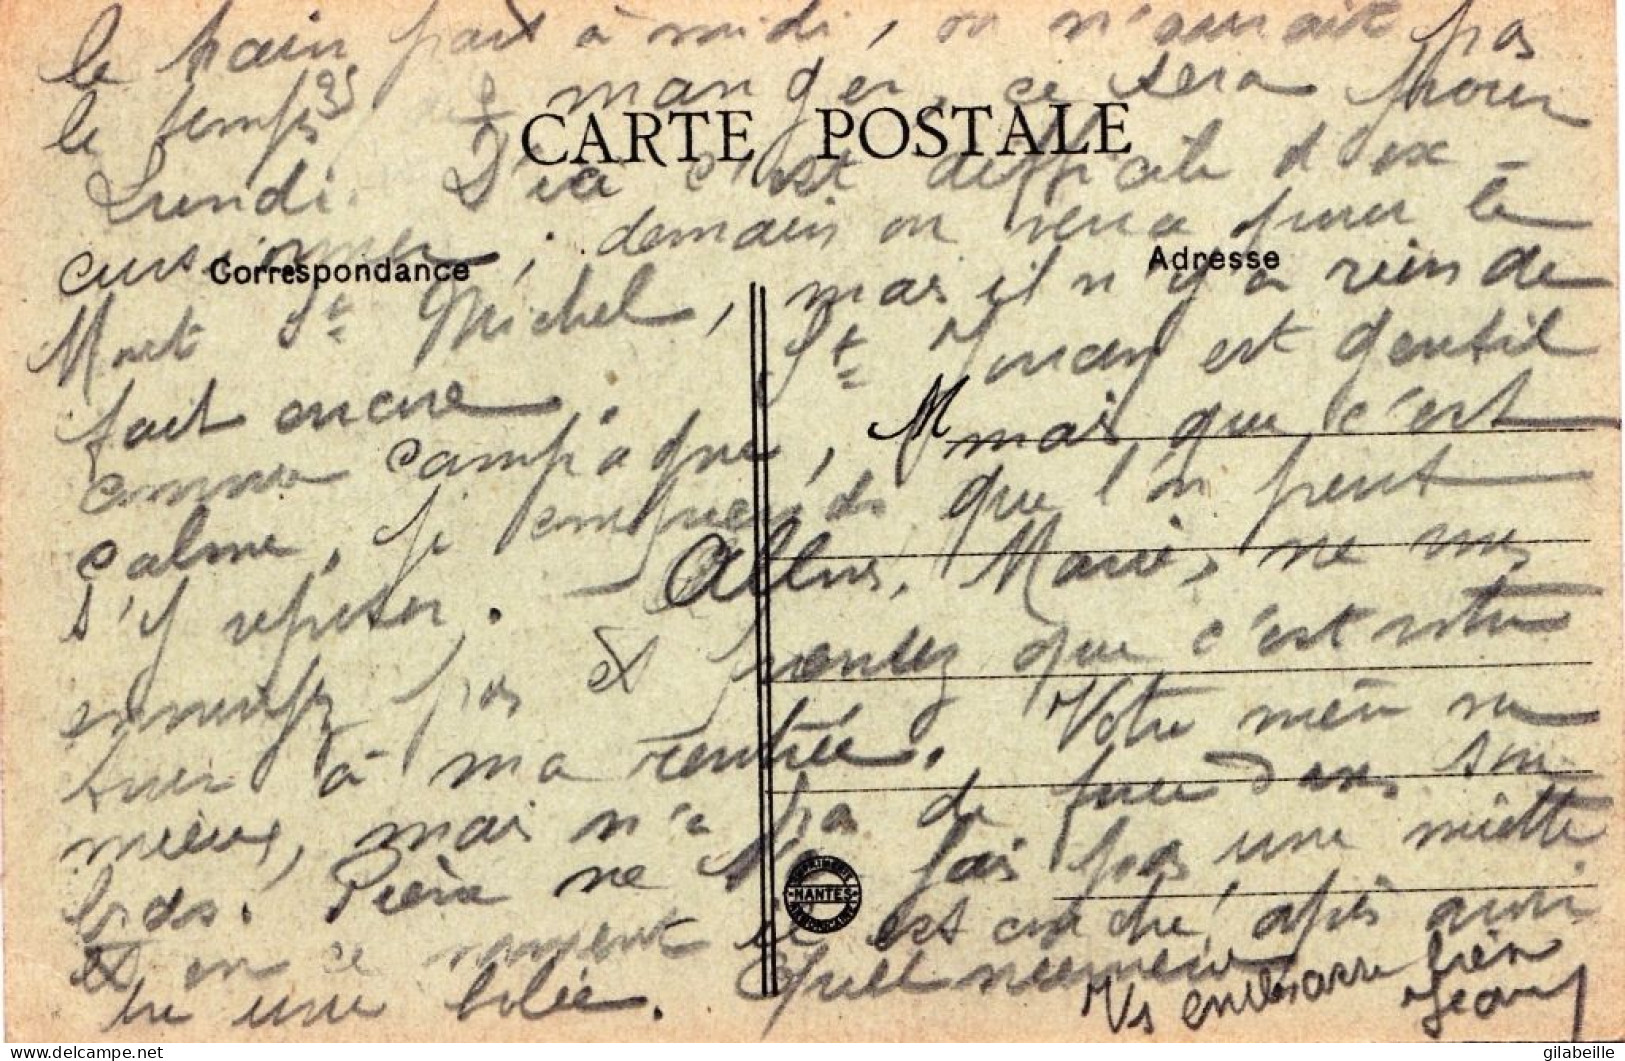 le train part à midi, on n'aurait pas
le temps de manger, ce sera pour
CARTE POSTALE
Lundi. D'ici c'est difficile d'ex-
cursionner ; demain on verra pour le
Correspondance
Adresse
Mont St Michel, mais il n'y a rien de
fait encore. St Jouan est gentil
comme campagne, mais que c'est
M
calme, je comprends que l'on peut
s'y reposer. - Allons, Marie, ne vous
ennuyez pas et pensez que c'est votre
tour à ma rentrée. Votre mère va
mieux, mais n'a pas de force dans son
bras. Pierre ne fais pas une miette
NANTES
et en ce moment il est couché après avoir
bu une bolée. Quelle
Vs embrasse bien
Jean
gilabeille